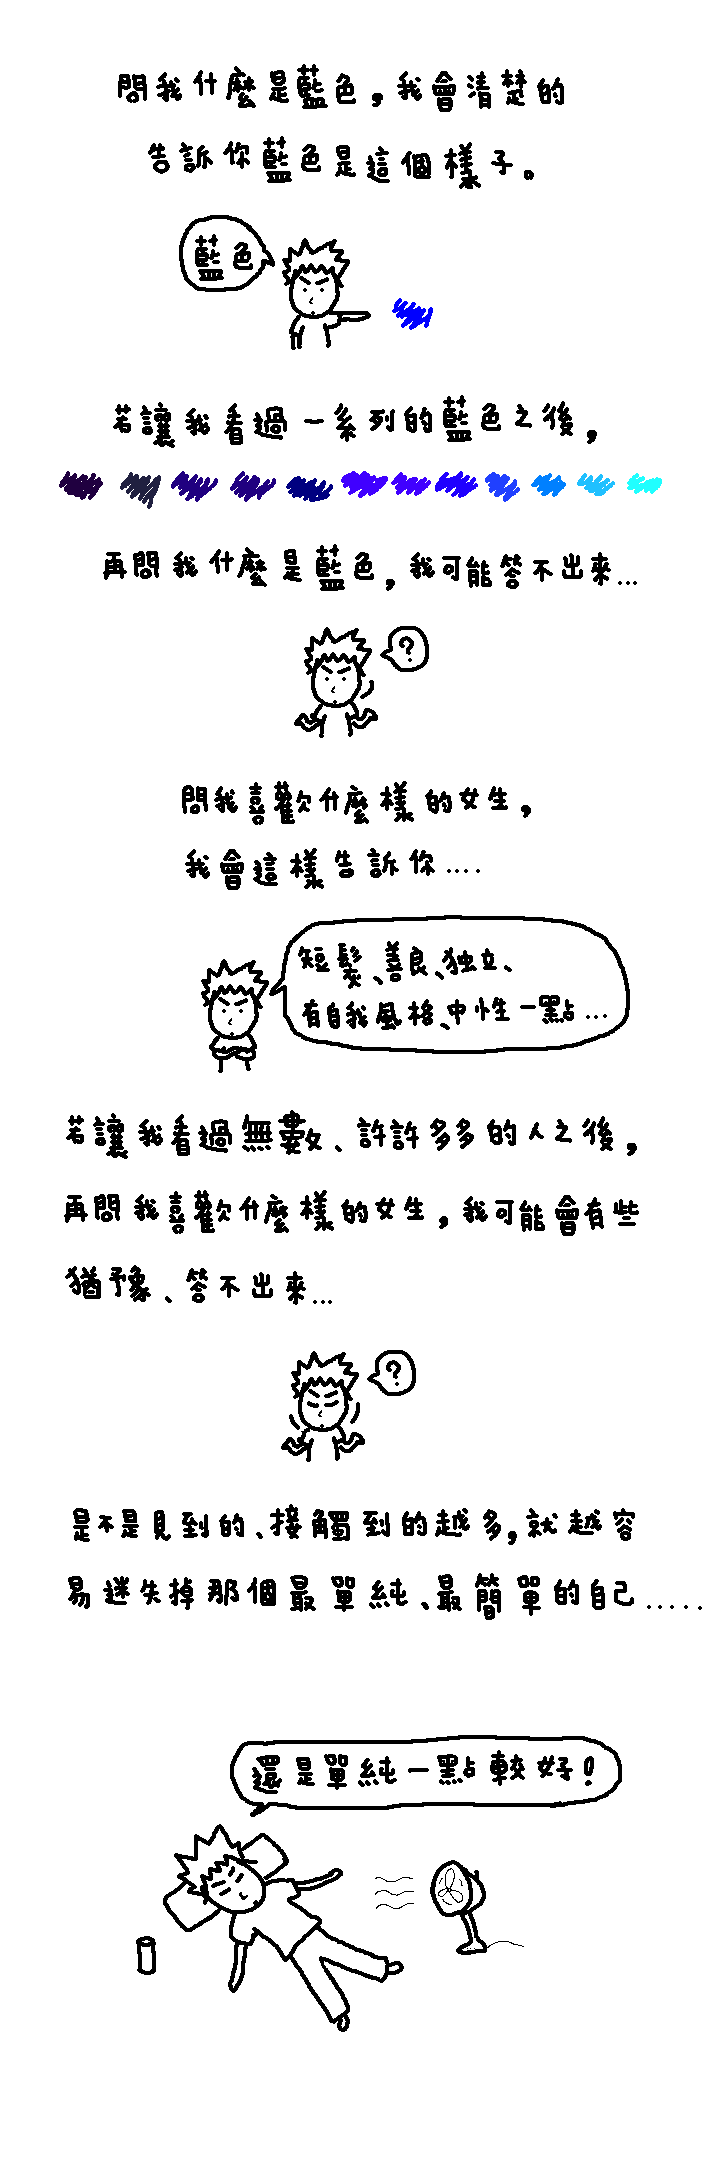 問我什麼是藍色，我會清楚的
告訴你藍色是這個樣子。
藍色
若讓我看過一系列的藍色之後，
再問我什麼是藍色，我可能答不出來...
?
問我喜歡什麼樣的女生，
我會這樣告訴你....
短髮、善良、独立、
有自我風格、中性一點...
若讓我看過無數、許許多多的人之後，
再問我喜歡什麼樣的女生，我可能會有些
猶豫、答不出來...
?
是不是見到的、接觸到的越多，就越容
易迷失掉那個最單純、最簡單的自己.....
還是單純一點較好！